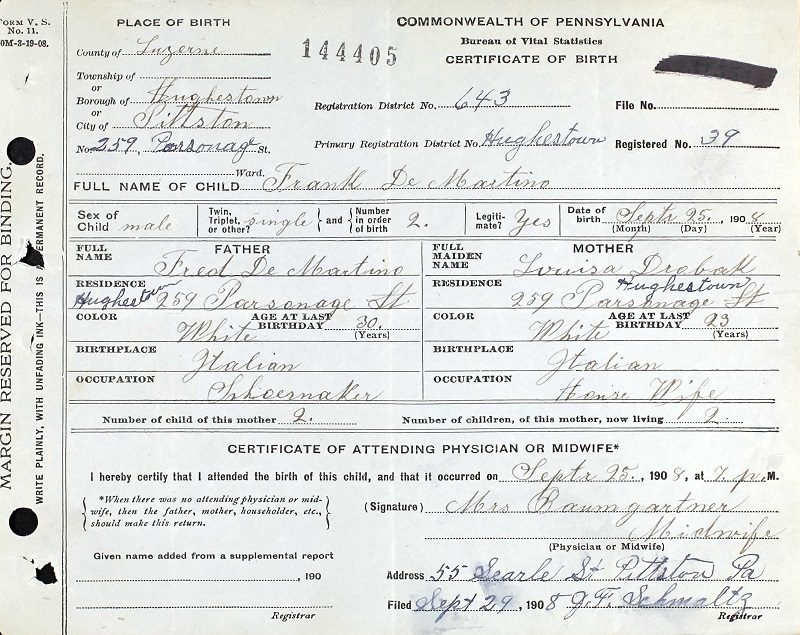 FORM V. S.
No. 11.
0M-3-19-08.
MARGIN RESERVED FOR BINDING.
WRITE PLAINLY, WITH UNFADING INK—THIS IS A PERMANENT RECORD.
PLACE OF BIRTH
COMMONWEALTH OF PENNSYLVANIA
County of Luzerne
144405
Bureau of Vital Statistics
CERTIFICATE OF BIRTH
Township of
or
Borough of Hughestown
or
City of Pittston
Registration District No. 643
File No.
No. 259, Parsonage St.
Primary Registration District No. Hughestown
Registered No. 39
Ward.
FULL NAME OF CHILD Frank De Martino
Sex of Child male
Twin, Triplet, or other? single and Number in order of birth 2.
Legiti-mate? Yes
Date of birth Septr 25., 1908
(Month) (Day) (Year)
FATHER
FULL NAME Fred De Martino
RESIDENCE Hughestown 259 Parsonage St
COLOR White AGE AT LAST BIRTHDAY 30.
(Years)
BIRTHPLACE Italian
OCCUPATION Shoemaker
MOTHER
FULL MAIDEN NAME Louisa Drobak
RESIDENCE Hughestown
259 Parsonage St
COLOR White AGE AT LAST BIRTHDAY 23
(Years)
BIRTHPLACE Italian
OCCUPATION House Wife
Number of child of this mother 2.
Number of children, of this mother, now living 2
CERTIFICATE OF ATTENDING PHYSICIAN OR MIDWIFE*
I hereby certify that I attended the birth of this child, and that it occurred on Septr 25., 1908, at 7. p. M.
*When there was no attending physician or mid-
wife, then the father, mother, householder, etc.,
should make this return.
(Signature) Mrs Baumgartner
Midwife
(Physician or Midwife)
Given name added from a supplemental report
, 190
Registrar
Address 55 Searle St Pittston Pa
Filed Sept 29, 1908 J. F. Schmaltz
Registrar